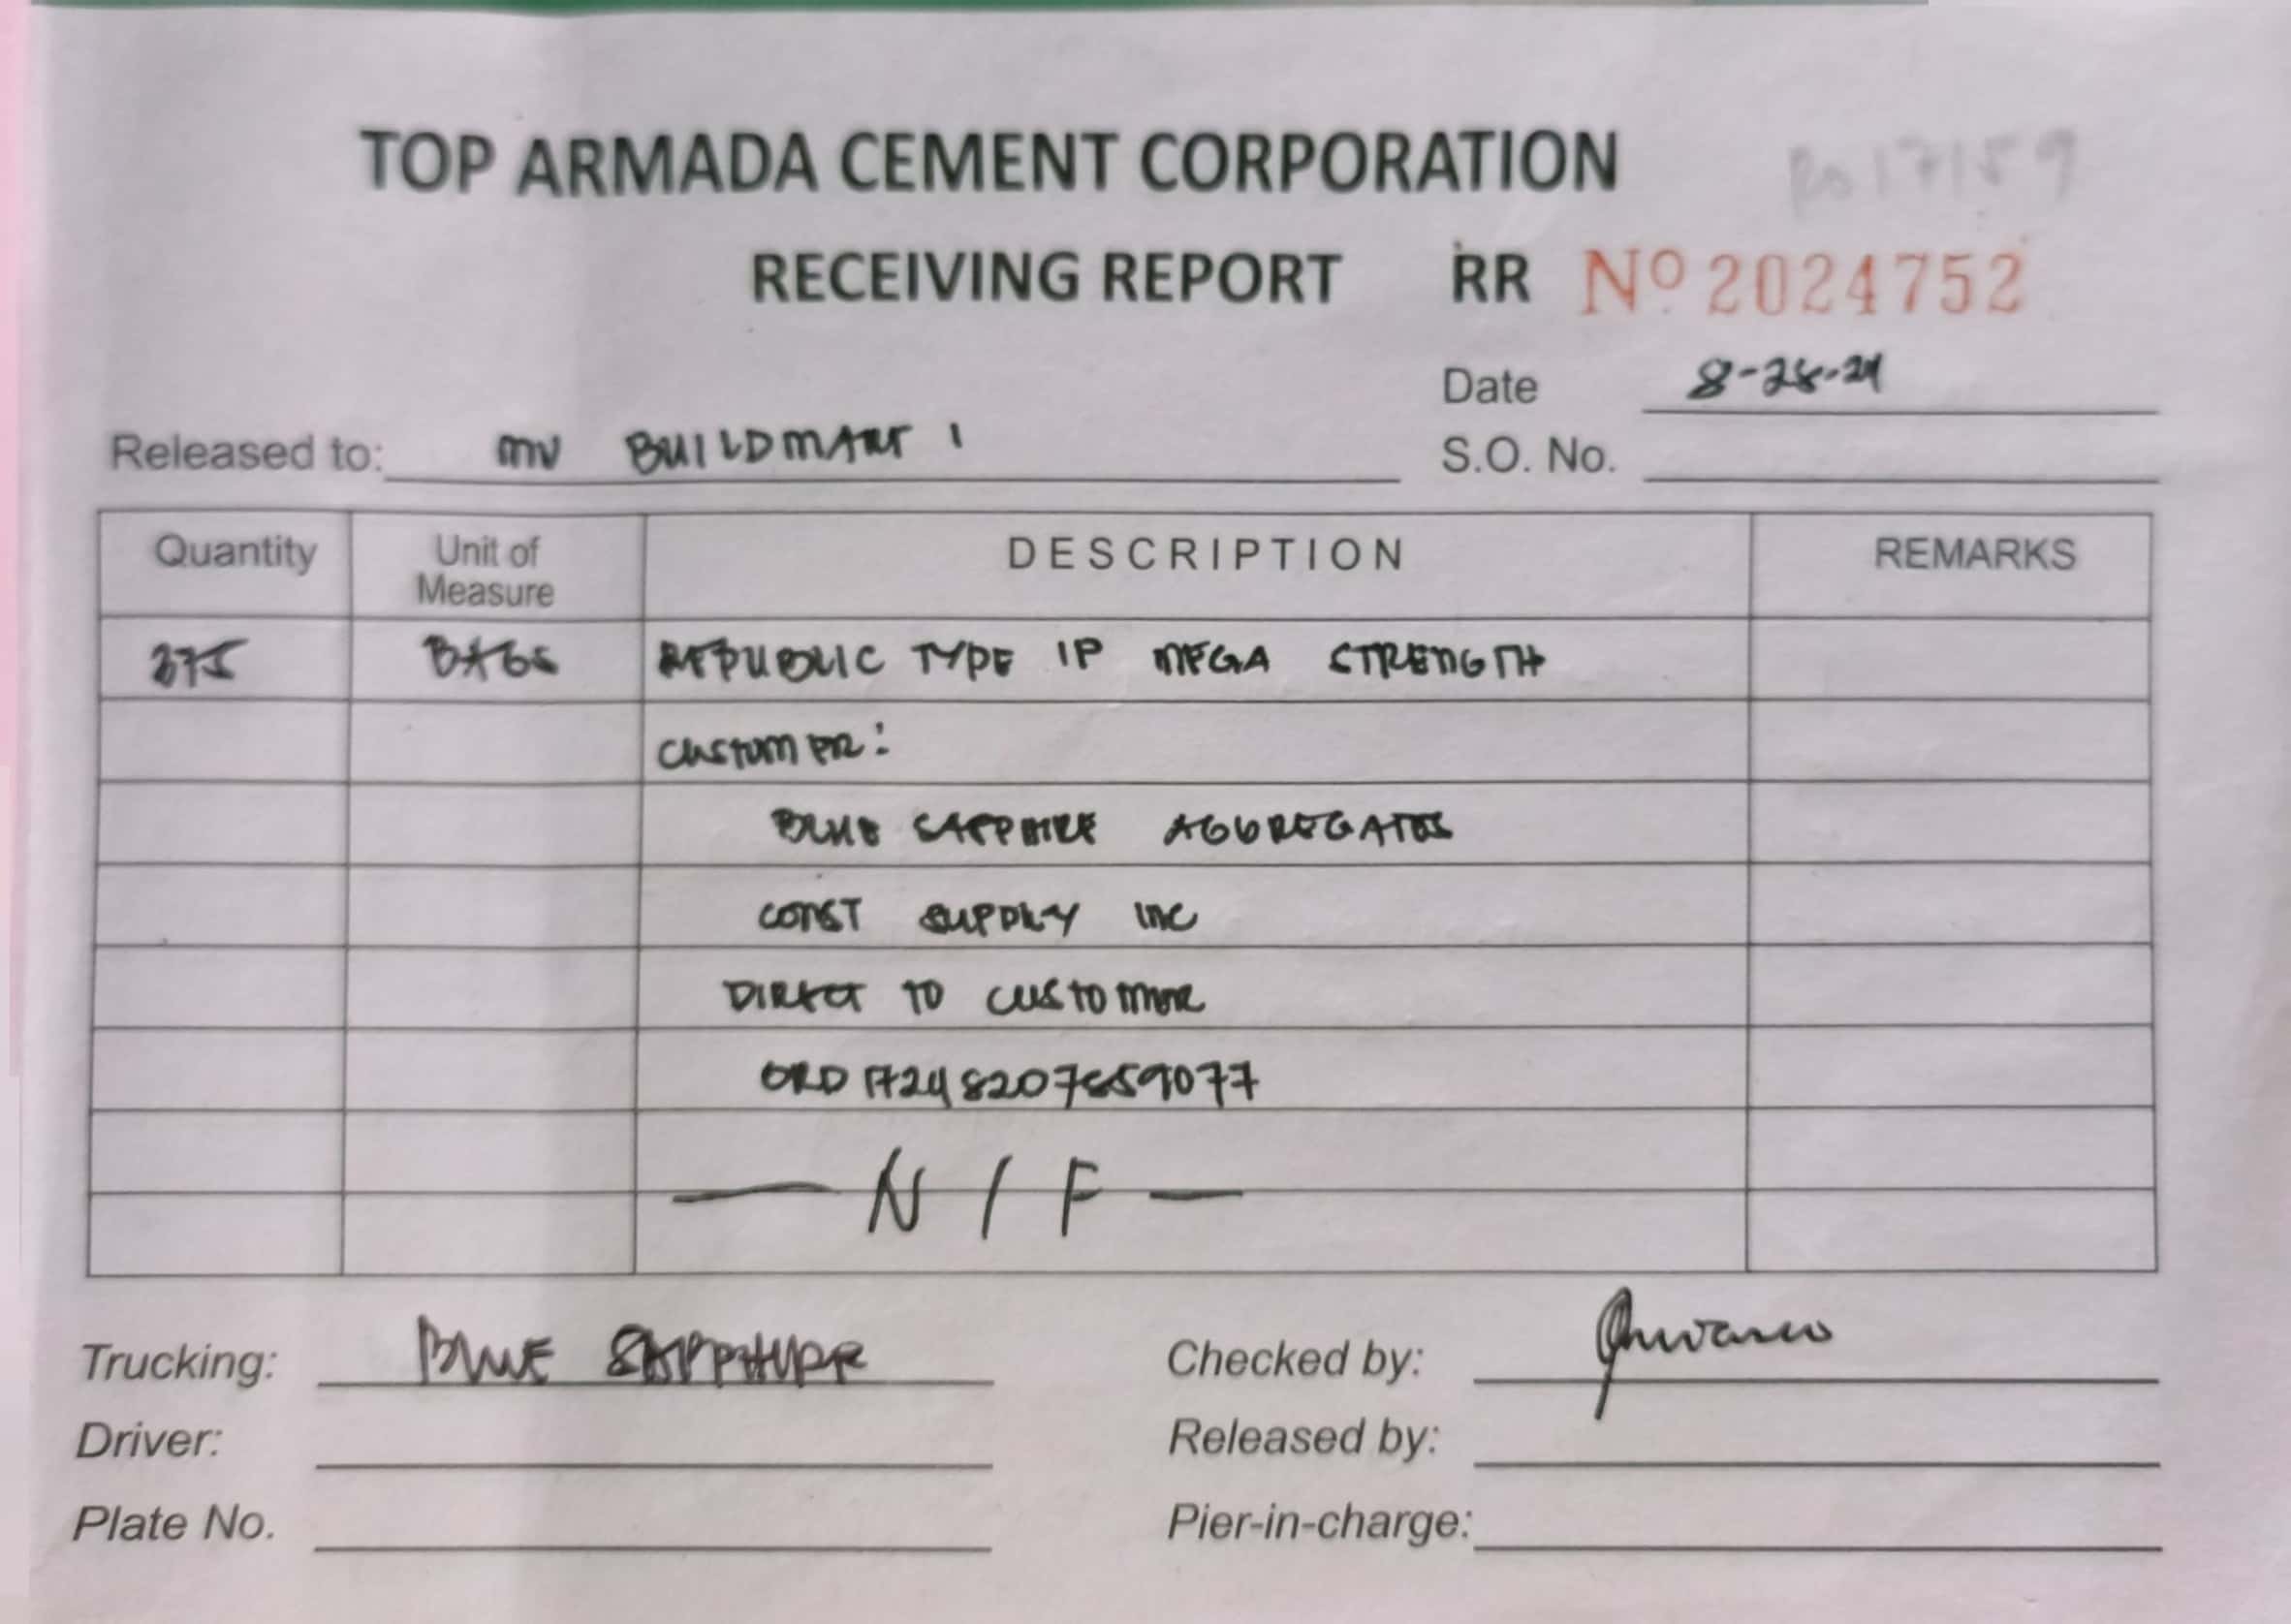 TOP ARMADA CEMENT CORPORATION
RECEIVING REPORT RR Nº 2024752
Date 8-28-24
Released to: MV BUILDMART 1
S.O. No.
Quantity Unit of Measure DESCRIPTION REMARKS
375 BAGS REPUBLIC TYPE IP MEGA STRENGTH
CUSTOMER:
BLUE SAPPHIRE AGGREGATES
CONST SUPPLY INC
DIRECT TO CUSTOMER
ORD
— N / F —
Trucking: BLUE SAPPHIRE Checked by:
Driver: Released by:
Plate No. Pier-in-charge: